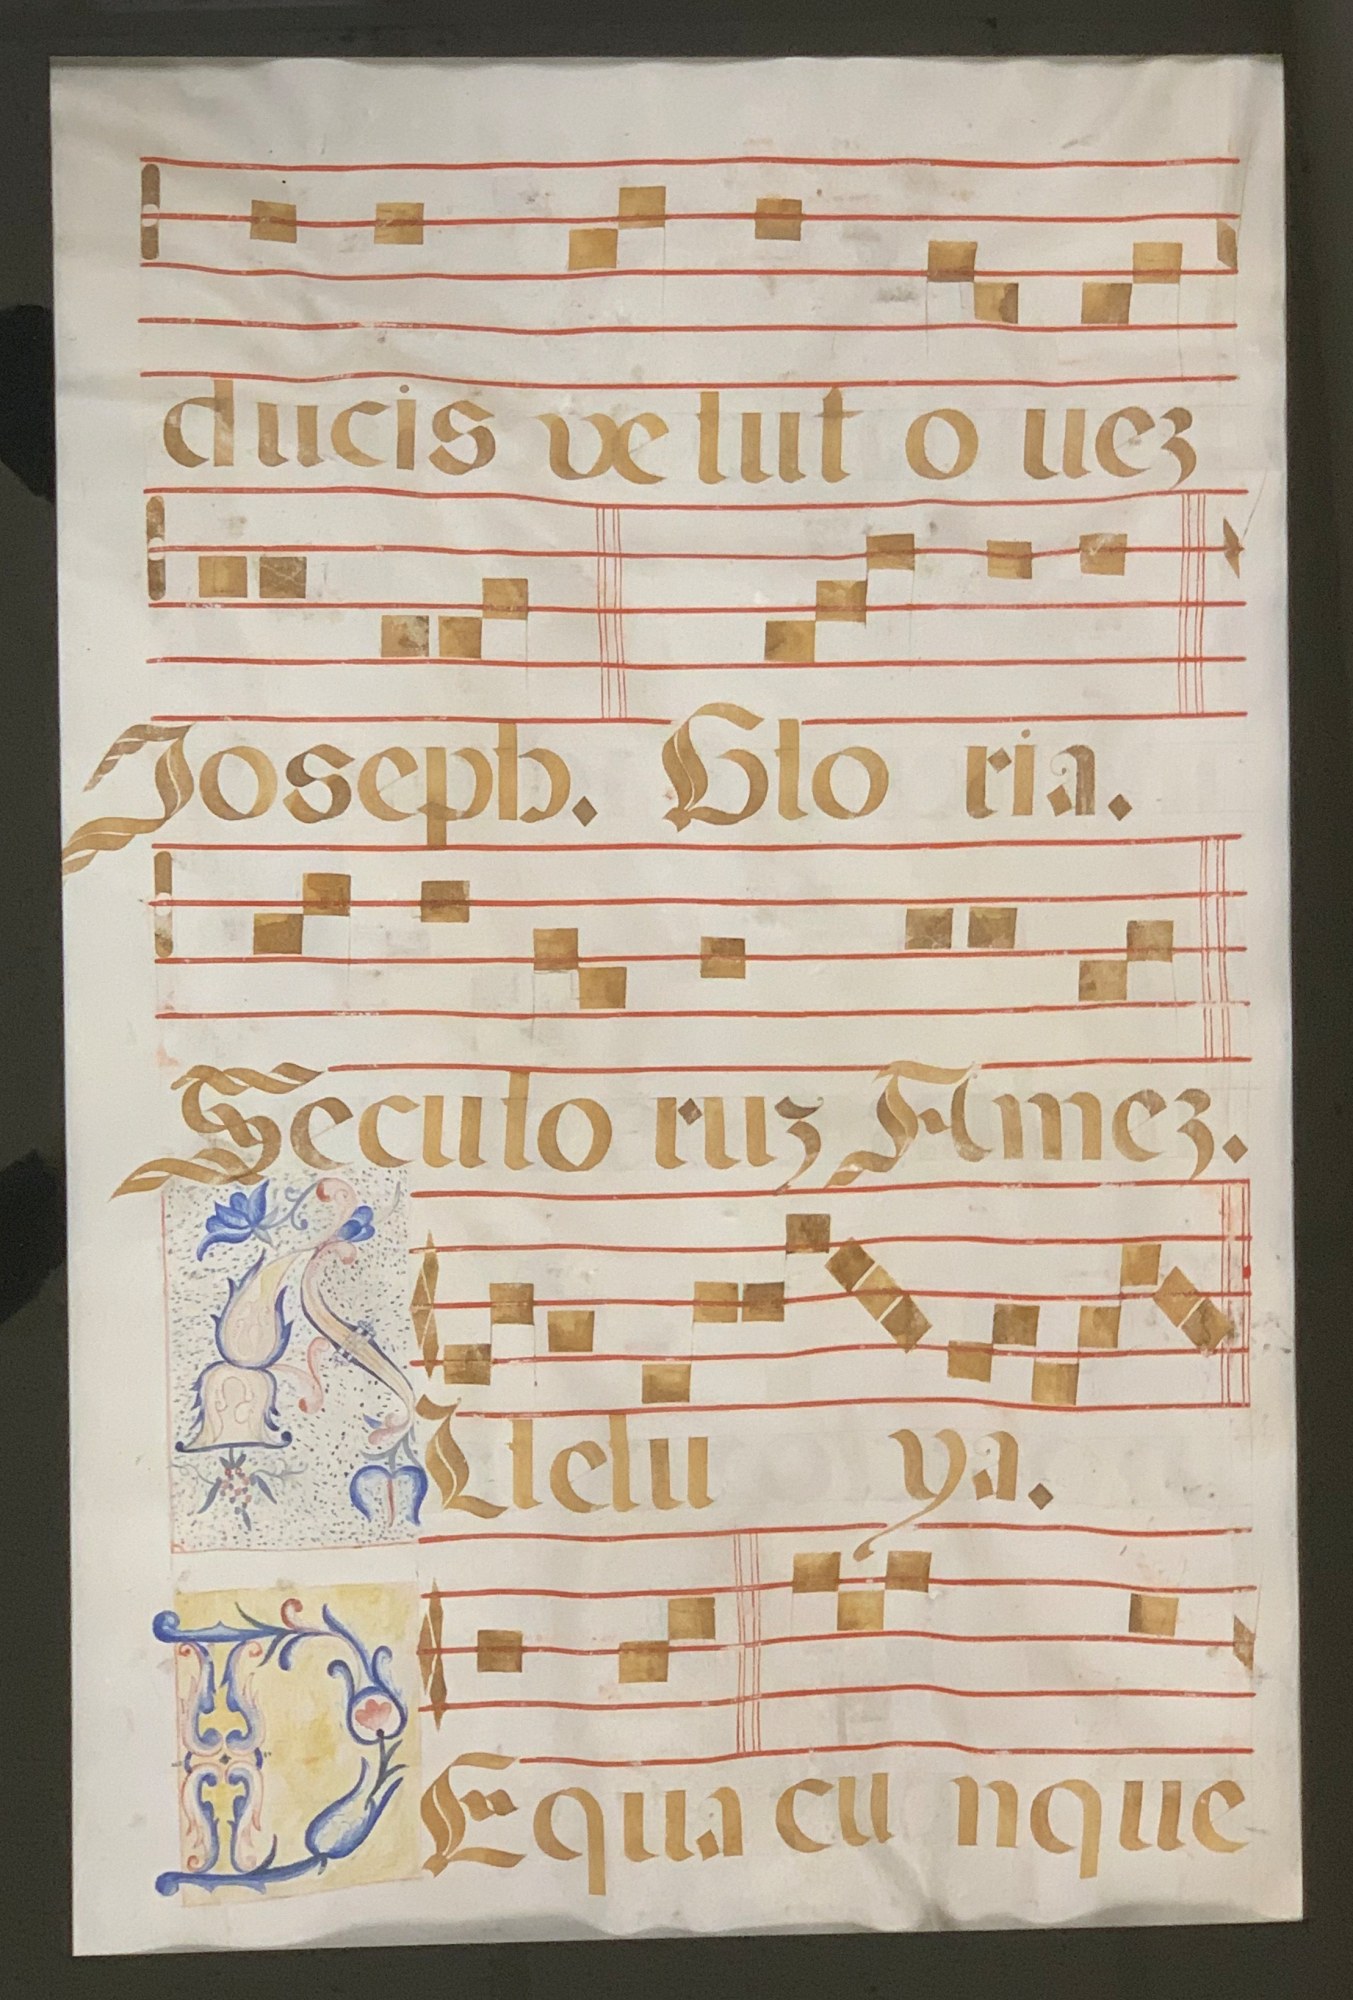 ducis ve lut o uez
Joseph. Glo ria.
Seculo ruz Amez.
ALlelu ya.
DEqua cu nque